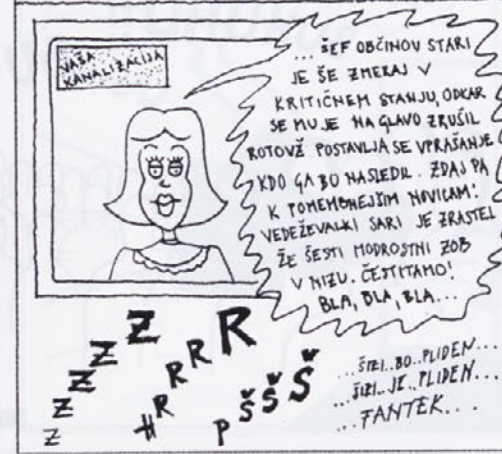 VAŠA
KANALIZACIJA
... ŠEF OBČINOV STARI
JE ŠE ZMERAJ V
KRITIČNEM STANJU, ODKAR
SE MU JE NA GLAVO ZRUŠIL
ROTOVŽ POSTAVLJA SE VPRAŠANJE
KDO GA BO NASLEDIL. ZDAJ PA
K POMEMBNEJŠIM NOVICAM:
VEDEŽEVALKI SARI JE ZRASTEL
ŽE ŠESTI MODROSTNI ZOB
V NIZU. ČESTITAMO!
BLA, BLA, BLA...
Z Z Z Z Z
H R R R R
P Š Š Š
...ŠIZI..BO..PLIDEN...
...ŠIZI..JE..PLIDEN...
...FANTEK...